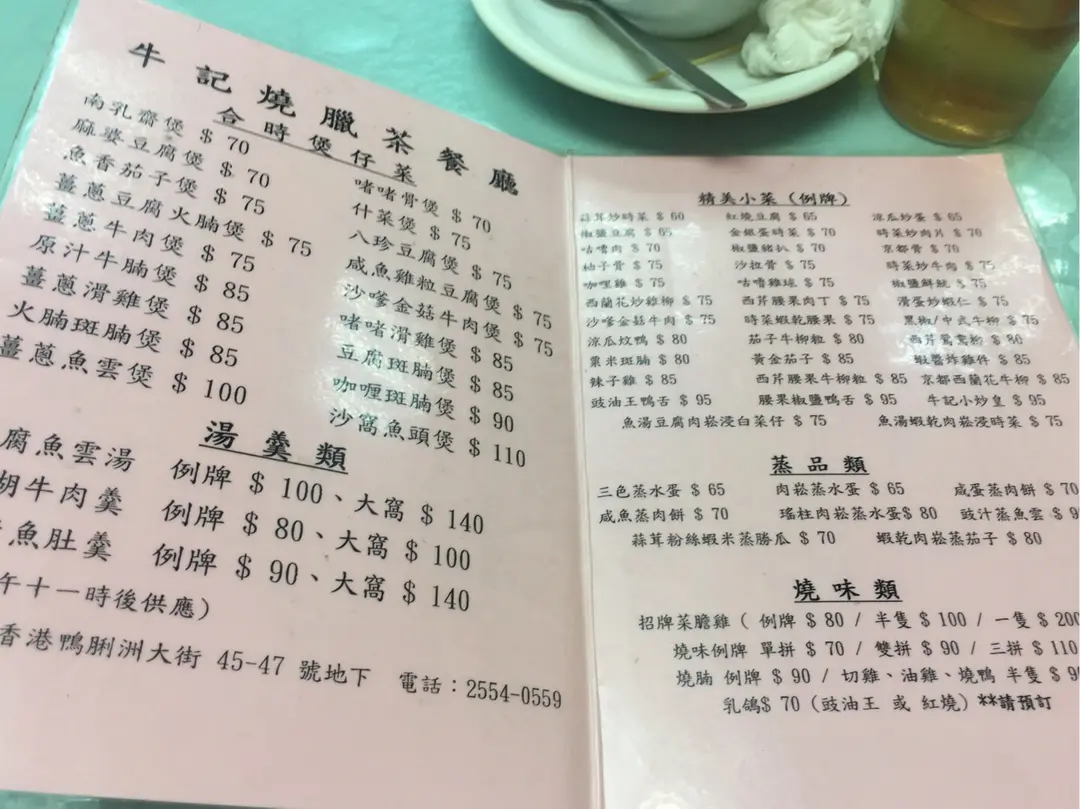 牛記燒臘茶餐廳
合時煲仔菜
南乳齋煲 $ 70
麻婆豆腐煲 $ 70
魚香茄子煲 $ 75
薑蔥豆腐火腩煲 $ 75
薑蔥牛肉煲 $ 75
原汁牛腩煲 $ 85
薑蔥滑雞煲 $ 85
火腩斑腩煲 $ 85
薑蔥魚雲煲 $ 100
啫啫骨煲 $ 70
什菜煲 $ 75
八珍豆腐煲 $ 75
咸魚雞粒豆腐煲 $ 75
沙嗲金菇牛肉煲 $ 75
啫啫滑雞煲 $ 85
豆腐斑腩煲 $ 85
咖喱斑腩煲 $ 90
沙窩魚頭煲 $ 110
湯羹類
腐魚雲湯 例牌 $ 100、大窩 $ 140
胡牛肉羹 例牌 $ 80、大窩 $ 100
魚肚羹 例牌 $ 90、大窩 $ 140
午十一時後供應)
香港鴨脷洲大街 45-47 號地下 電話：2554-0559
精美小菜(例牌)
蒜茸炒時菜 $ 60 紅燒豆腐 $ 65 涼瓜炒蛋 $ 65
椒鹽豆腐 $ 65 金銀蛋時菜 $ 70 時菜炒肉片 $ 70
咕嚕肉 $ 70 椒鹽豬扒 $ 70 京都骨 $ 70
柚子骨 $ 75 沙拉骨 $ 75 時菜炒牛肉 $ 75
咖哩雞 $ 75 咕嚕雞球 $ 75 椒鹽鮮魷 $ 75
西蘭花炒雞柳 $ 75 西芹腰果肉丁 $ 75 滑蛋炒蝦仁 $ 75
沙嗲金菇牛肉 $ 75 時菜蝦乾腰果 $ 75 黑椒/中式牛柳 $ 75
涼瓜炆鴨 $ 80 茄子牛柳粒 $ 80 西芹鴛鴦粉 $ 80
粟米斑腩 $ 80 黃金茄子 $ 85 蝦醬炸雞件 $ 85
辣子雞 $ 85 西芹腰果牛柳粒 $ 85 京都西蘭花牛柳 $ 85
豉油王鴨舌 $ 95 腰果椒鹽鴨舌 $ 95 牛記小炒皇 $ 95
魚湯豆腐肉崧浸白菜仔 $ 75 魚湯蝦乾肉崧浸時菜 $ 75
蒸品類
三色蒸水蛋 $ 65 肉崧蒸水蛋 $ 65 咸蛋蒸肉餅 $ 70
咸魚蒸肉餅 $ 70 瑤柱肉崧蒸水蛋$ 80 豉汁蒸魚雲 $ 9
蒜茸粉絲蝦米蒸勝瓜 $ 70 蝦乾肉崧蒸茄子 $ 80
燒味類
招牌菜膽雞 ( 例牌 $ 80 / 半隻 $ 100 / 一隻 $ 200
燒味例牌 單拼 $ 70 / 雙拼 $ 90 / 三拼 $ 110
燒腩 例牌 $ 90 / 切雞、油雞、燒鴨 半隻 $ 9
乳鴿$ 70 (豉油王 或 紅燒) **請預訂